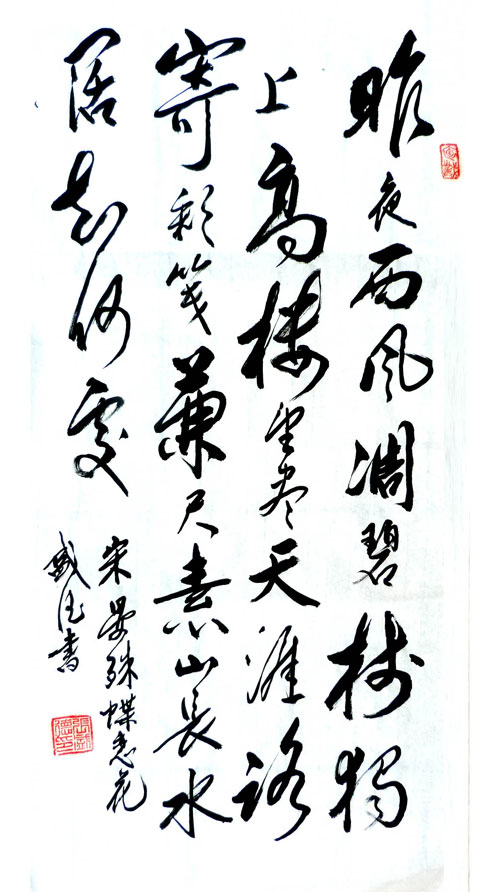 昨夜西风凋碧树獨
上高楼望尽天涯路
寄彩笺兼尺素山長水
阔知何處
宋晏殊蝶恋花
戴德書